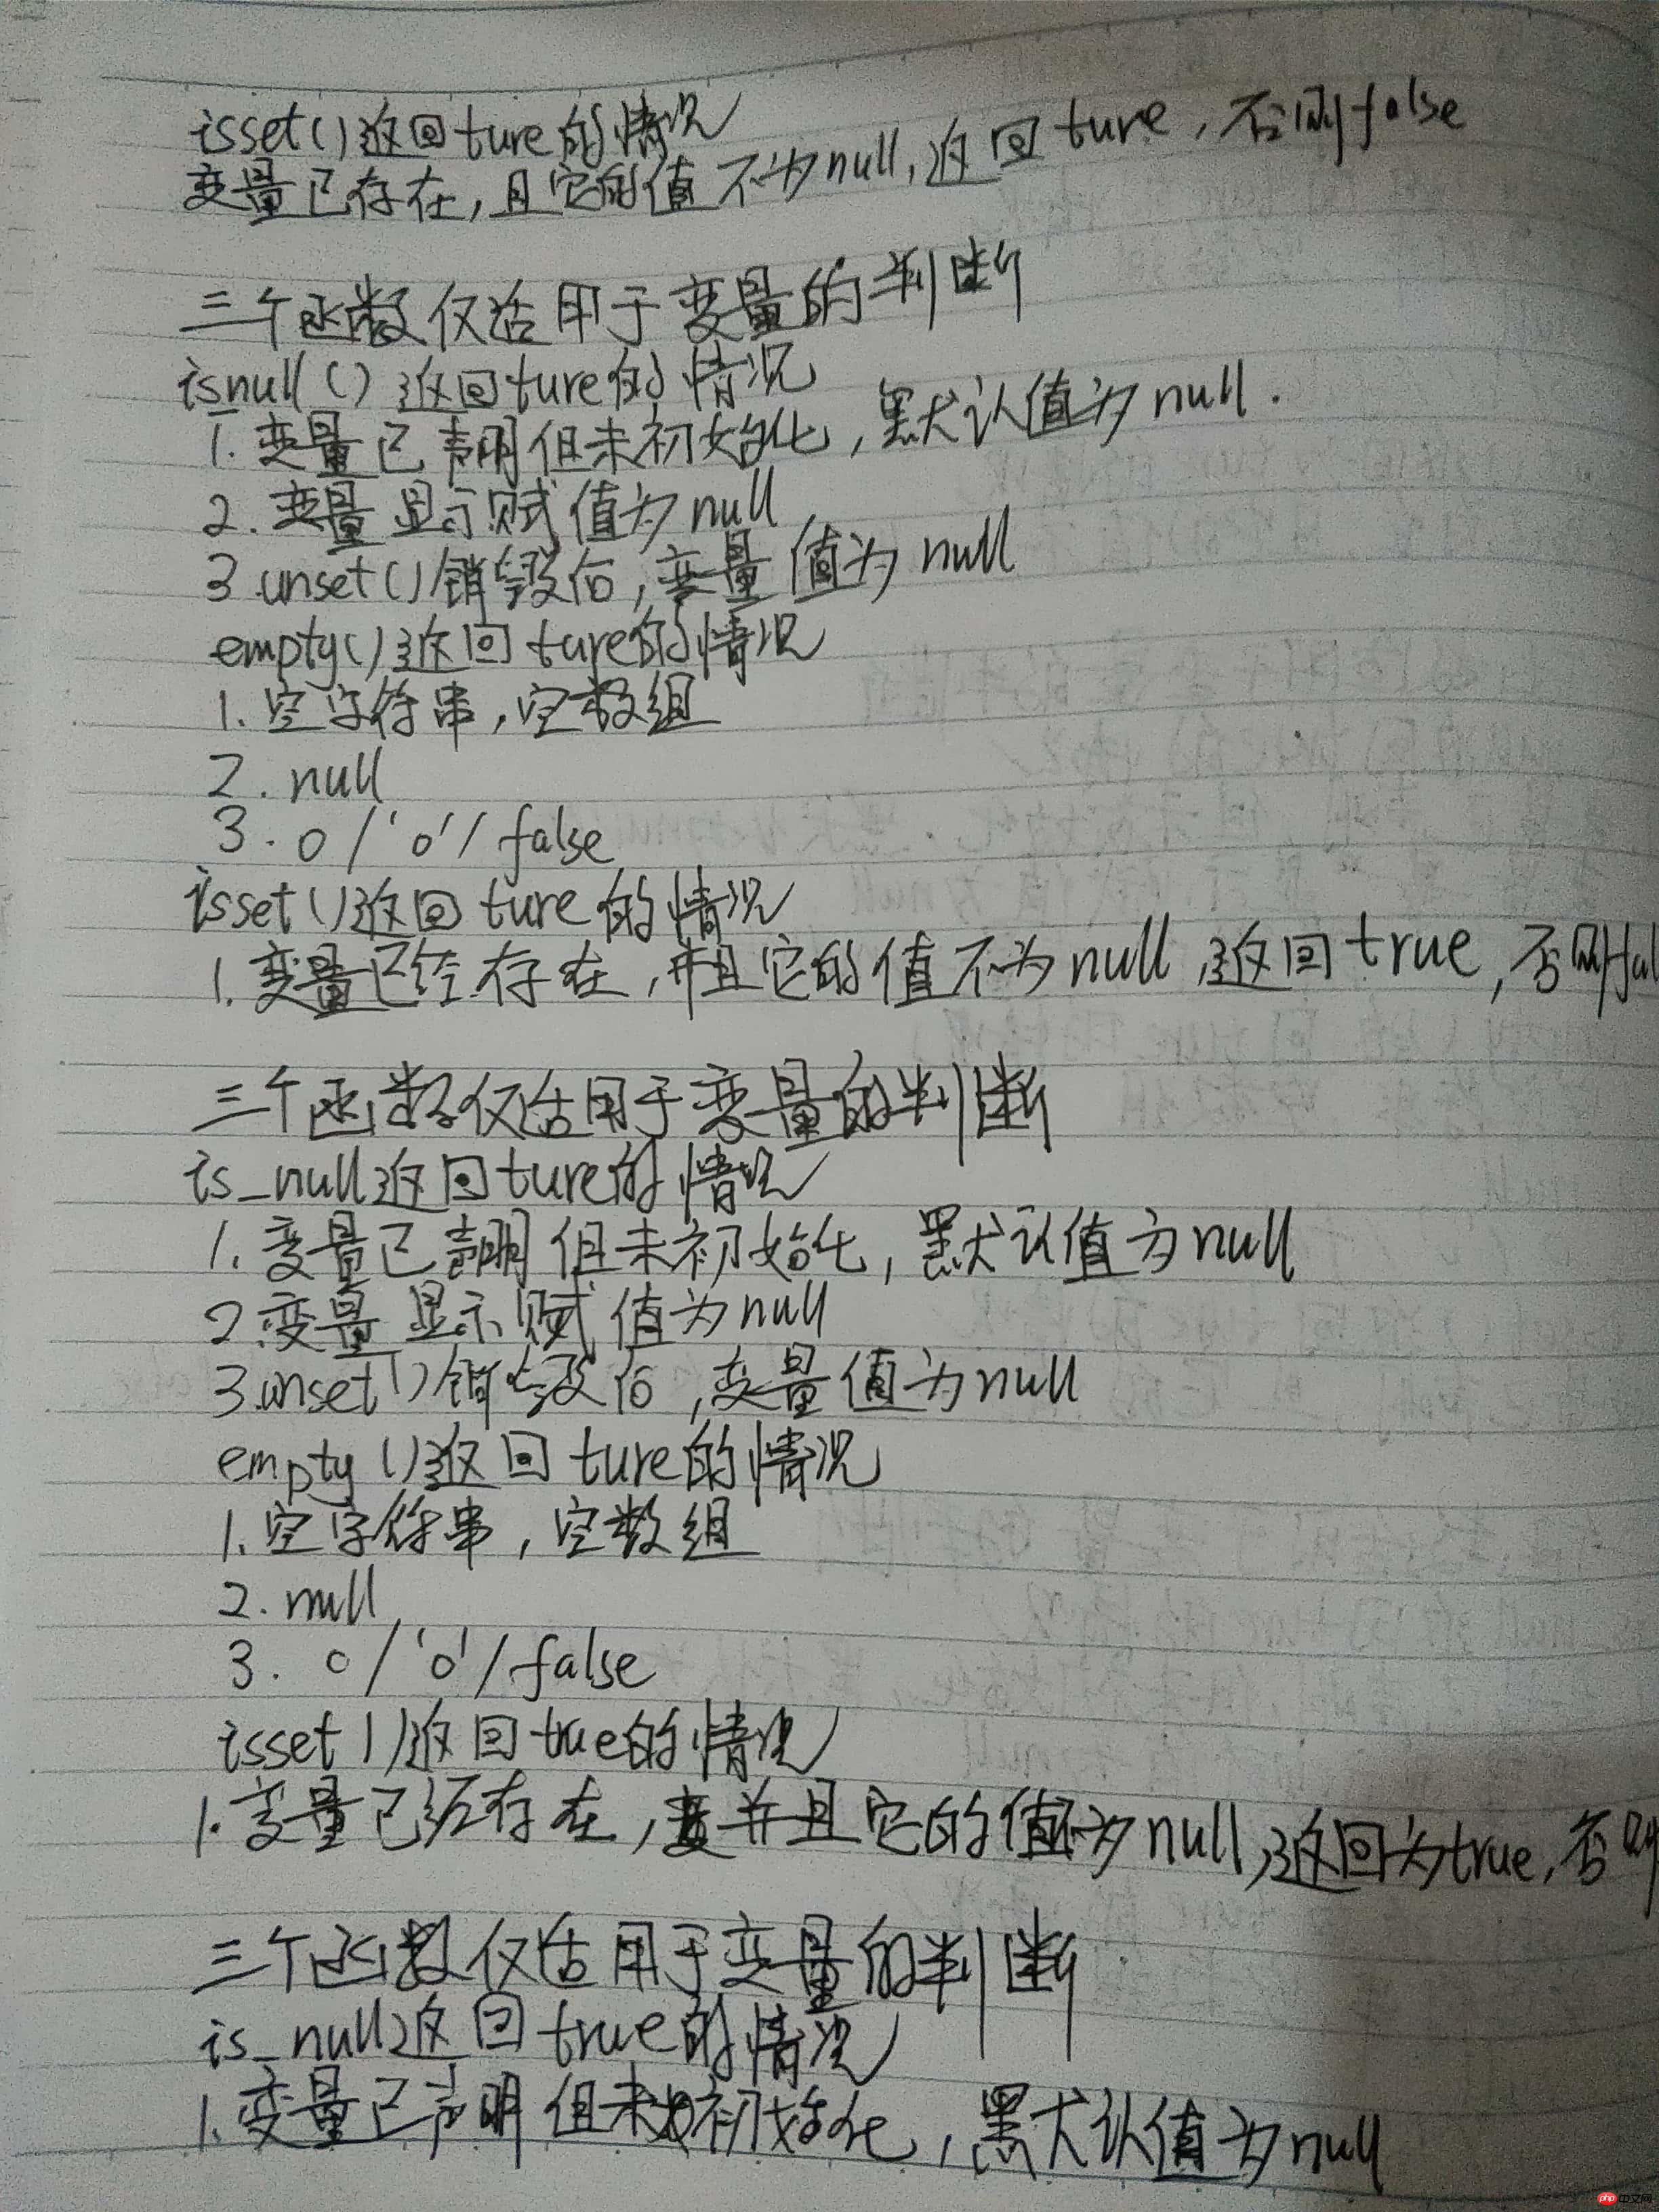 isset()返回ture的情况
变量已存在,且它的值不为null,返回ture,否则false
三个函数仅适用于变量的判断
isnull()返回ture的情况
1.变量已声明但未初始化,默认值为null.
2.变量显示赋值为null
3.unset()销毁后,变量值为null
empty()返回ture的情况
1.空字符串,空数组
2.null
3.0/'0'/false
isset()返回ture的情况
1.变量已经存在,并且它的值不为null,返回true,否则fal
三个函数仅适用于变量的判断
is_null返回ture的情况
1.变量已声明但未初始化,默认值为null
2.变量显示赋值为null
3.unset()销毁后,变量值为null
empty()返回ture的情况
1.空字符串,空数组
2.null
3.0/'0'/false
isset()返回true的情况
1.变量已经存在,并且它的值不为null,返回为true,否则
三个函数仅适用于变量的判断
is_null返回true的情况
1.变量已声明但未初始化,默认值为null
php中文网